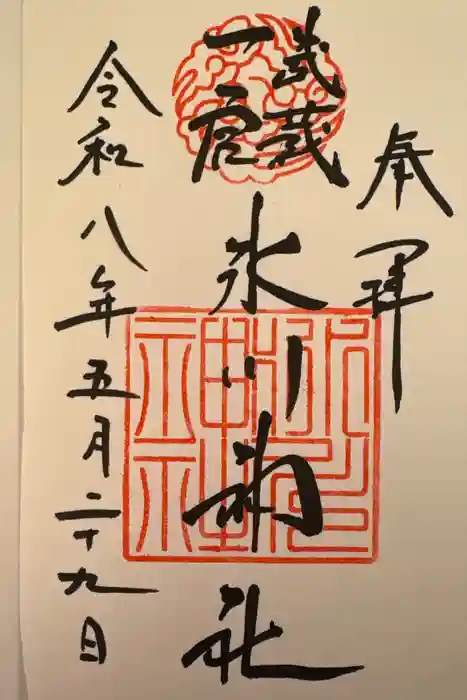 奉拝
武蔵
一宮
氷川神社
令和八年五月二十九日